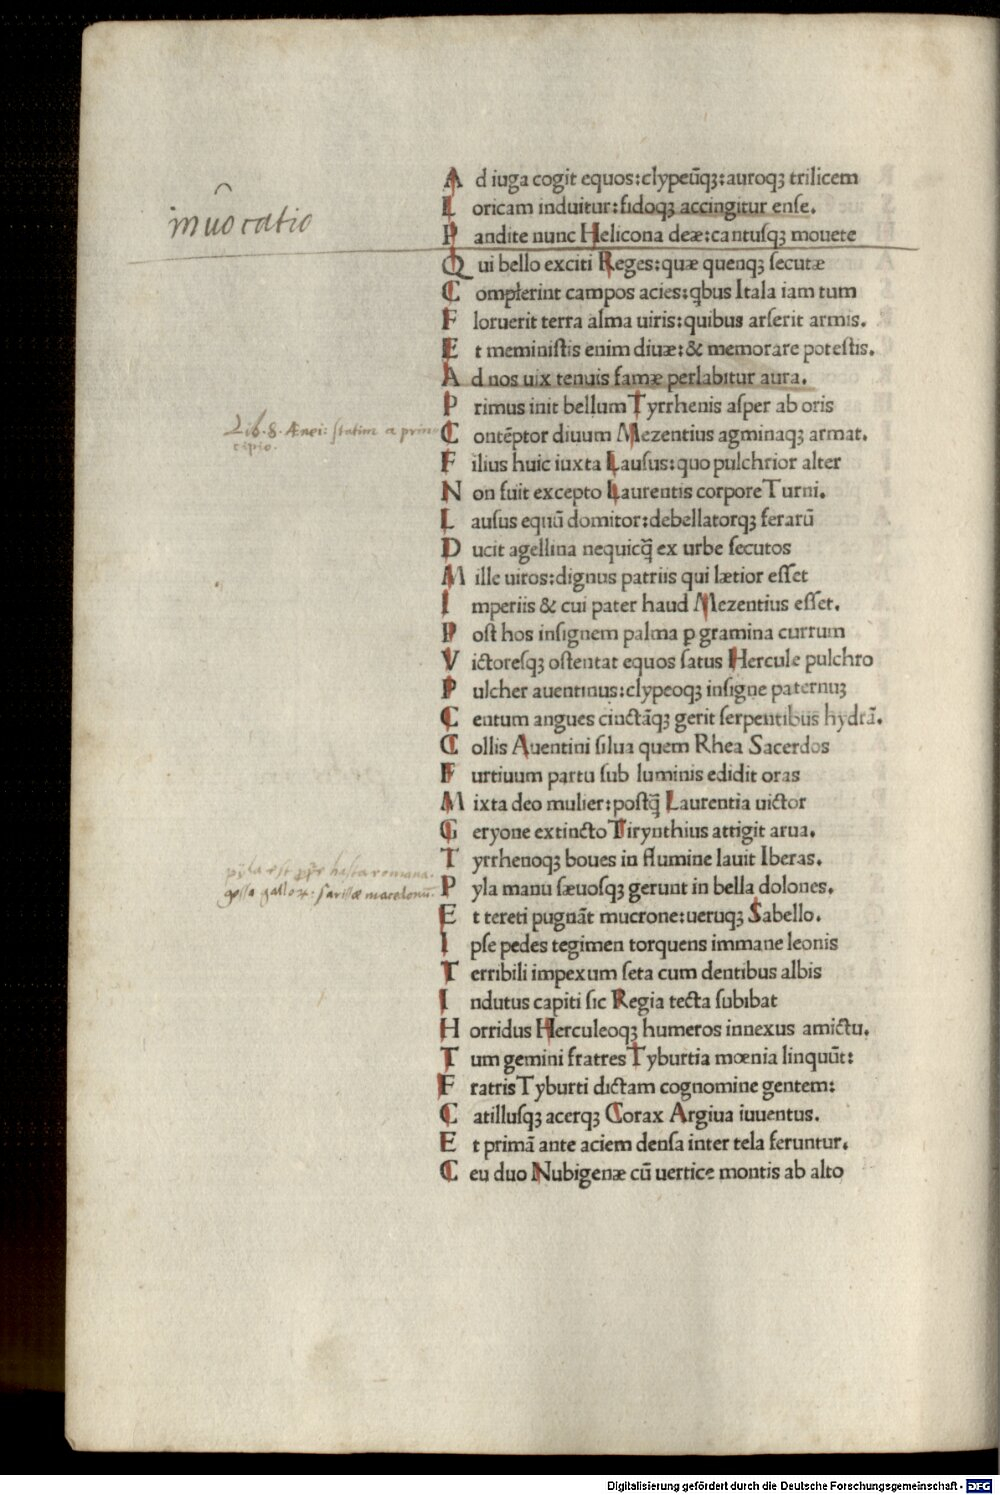 Ad iuga cogit equos:clypeũqʒ:auroqʒ trilicem
Loricam induitur:fidoqʒ accingitur enſe.
inuocatio
Pandite nunc Helicona deæ:cantuſqʒ mouete
Qui bello exciti Reges:quæ quenqʒ ſecutæ
Complerint campos acies:qbus Itala iam tum
Floruerit terra alma uiris:quibus arſerit armis.
Et meminiſtis enim diuæ:& memorare poteſtis.
Ad nos uix tenuis famæ perlabitur aura.
Primus init bellum Tyrrhenis aſper ab oris
Lib. 8. Ænei: ſtatim a prin
cipio.
Contẽptor diuum Mezentius agminaqʒ armat.
Filius huic iuxta Lauſus:quo pulchrior alter
Non fuit excepto Laurentis corpore Turni.
Lauſus equũ domitor:debellatorqʒ ferarũ
Ducit agellina nequicq̃ ex urbe ſecutos
Mille uiros:dignus patriis qui lætior eſſet
Imperiis & cui pater haud Mezentius eſſet.
Poſt hos inſignem palma ꝑ gramina currum
Victoreſqʒ oſtentat equos ſatus Hercule pulchro
Pulcher auentinus:clypeoqʒ inſigne paternuʒ
Centum angues cinctãqʒ gerit ſerpentibus hydrã.
Collis Auentini ſilua quem Rhea Sacerdos
Furtiuum partu ſub luminis edidit oras
Mixta deo mulier:poſtq̃ Laurentia uictor
Geryone extincto Tirynthius attigit arua.
Tyrrhenoqʒ boues in flumine lauit Iberas.
pyla est haſta romana.
Pyla manu ſæuoſqʒ gerunt in bella dolones.
galloꝝ. ſariſſæ macedonũ.
Et tereti pugnãt mucrone:ueruqʒ Sabello.
Ipſe pedes tegimen torquens immane leonis
Terribili impexum ſeta cum dentibus albis
Indutus capiti ſic Regia tecta ſubibat
Horridus Herculeoqʒ humeros innexus amictu.
Tum gemini fratres Tyburtia mœnia linquũt:
Fratris Tyburti dictam cognomine gentem:
Catilluſqʒ acerqʒ Corax Argiua iuuentus.
Et primã ante aciem denſa inter tela feruntur.
Ceu duo Nubigenæ cũ uertice montis ab alto
Digitalisierung gefördert durch die Deutsche Forschungsgemeinschaft - DFG